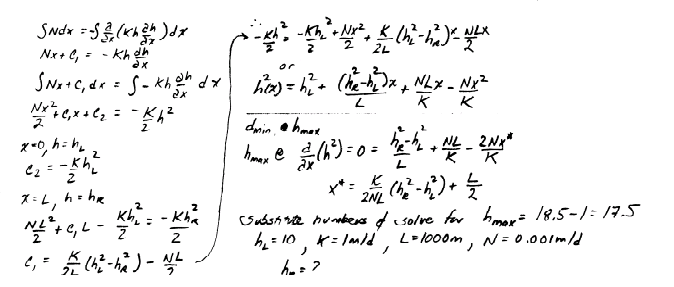 ∫Ndx = -∫∂/∂x(Kh ∂h/∂x)dx
Nx + C₁ = -Kh ∂h/∂x
∫Nx + C₁ dx = ∫-Kh ∂h/∂x dx
Nx²/2 + C₁x + C₂ = -K/2 h²
x=0, h=h_L
C₂ = -Kh_L²/2
x=L, h=h_R
NL²/2 + C₁L - Kh_L²/2 = -Kh_R²/2
C₁ = K/2L (h_L²-h_R²) - NL/2
∴
-Kh²/2 = -Kh_L²/2 + Nx²/2 + K/2L (h_L²-h_R²)x - NLx/2
or
h²(x) = h_L² + (h_R²-h_L²)x/L + NLx/K - Nx²/K
dmin @ hmax
hmax @ ∂/∂x(h²) = 0 = h_R²-h_L²/L + NL/K - 2Nx*/K
x* = K/2NL (h_R²-h_L²) + L/2
Substitute numbers & solve for hmax = 18.5-1 = 17.5
h_L = 10, K = 1m/d, L = 1000m, N = 0.001m/d
h_R = ?